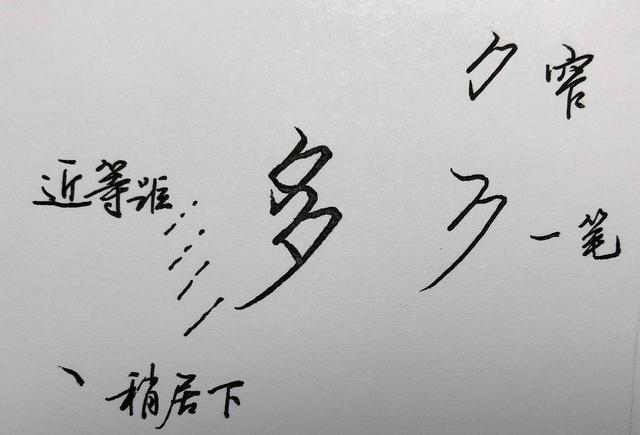 窄
近等距
多
一笔
稍居下